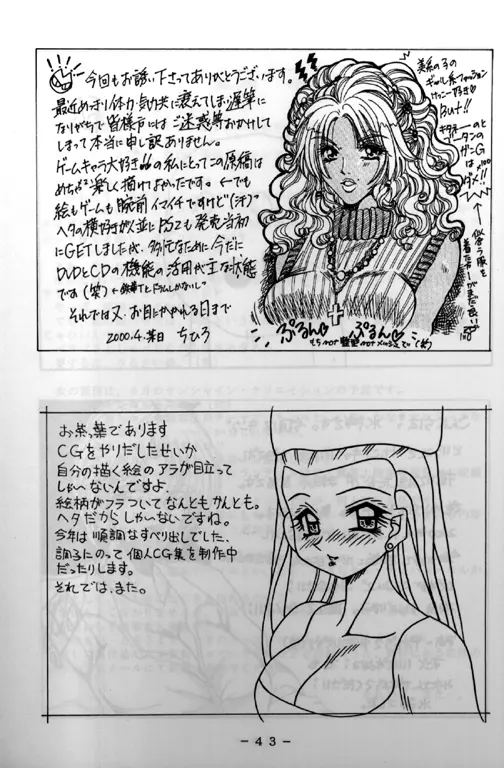 今回もお誘い下さってありがとうございます。
最近めっきり体力・気力共に衰えてしまい遅筆に
なりがちで皆様方にはご迷惑等おかけして
しまって本当に申し訳ありません。
ゲームキャラ大好きの私にとってこの原稿は
めちゃ²楽しく描けてよかったです。←でも
絵もゲームも腕前イマイチですけど"(汗)"
ヘタの横好き
PS2も発売当初
にGETしましたが、
ために今だに
DVDとCDの機能の活用が主な状態
です(笑)
それでは又、お目にかかれる日まで
2000.4.某日 ちひろ
美系の子の
ギャル系ファッション
好き♡
But!!
ガングロ
は
ダメ!!
似合う服を
着た方がまだ良い
ぷるん♡ ぷるん♡
お茶葉であります
CGをやりだしたせいか
自分の描く絵のアラが目立って
しゃーないんですよ
絵柄がフラついてなんともかんとも。
ヘタだからしゃーないですね。
今年は順調なすべり出しでした、
調子にのって個人CG集を制作中
だったりします。
それでは、また。
- 43 -